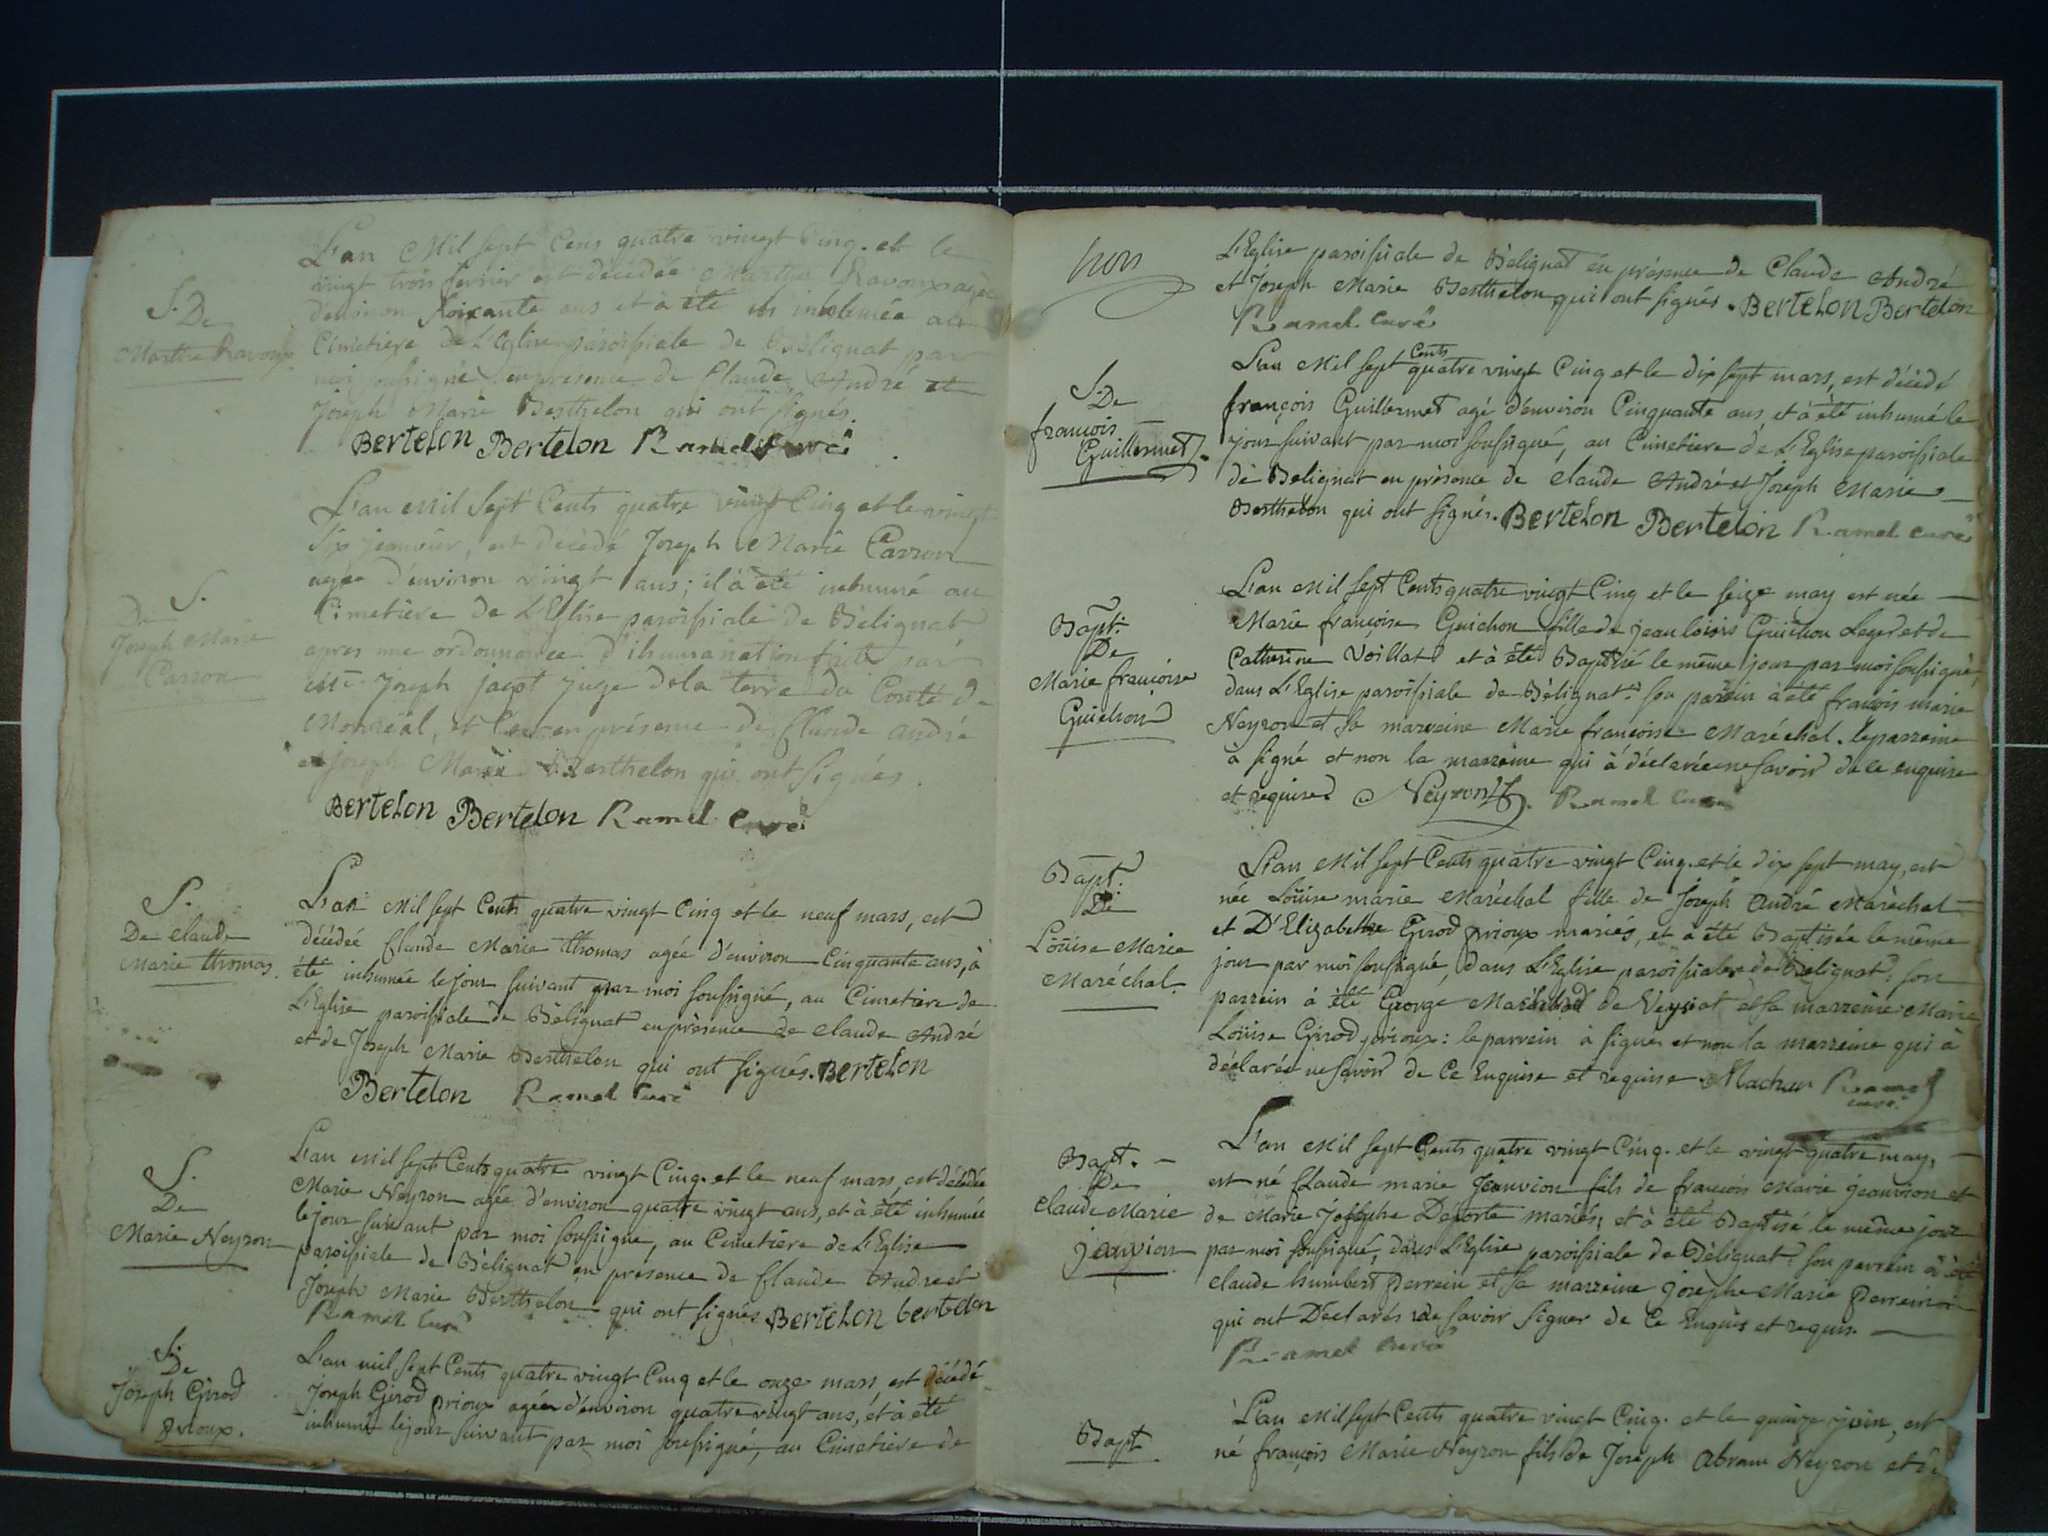 S. De
Marthe Ravoux
L'an Mil sept Cens quatre vingt Cinq. et le
vingt trois fevrier est décédée Marthe Ravoux agée
d'environ Soixante ans et à été inhumée au
Cimetiere de L'Eglise paroissiale de Bélignat par
moi soussigné en présence de Claude André et
Joseph Marie Berthelon qui ont signés.
Bertelon Bertelon Ramel Curé
S.
De
Joseph Marie
Carron
L'an Mil Sept Cents quatre vingt Cinq et le vingt
Six jeanvier, est décédé Joseph Marie Carron
agée d'environ vingt ans; il à été inhumé au
Cimetiere de L'Eglise paroissiale de Bélignat
apres une ordonnance d'ihumanation faite par
Joseph jacpt juge dela terre du Conté de
Monreal, et en présence de Claude André
et joseph Marie Berthelon qui ont Signés.
Bertelon Bertelon Ramel Curé
S.
De Claude
Marie thomas.
L'an Mil sept Cents quatre vingt Cinq et le neuf mars, est
décédée Claude Marie thomas agée d'environ Cinquante ans, à
été inhumée le jour suivant par moi soussigné, au Cimetiere de
L'Eglise paroissiale de Bélignat en présence de Claude André
et de Joseph Marie Berthelon qui ont signés. Bertelon
Bertelon Ramel Curé
S.
De
Marie Neyron
L'an Mil sept Cents quatre vingt Cinq. et le neuf mars, est décédée
Marie Neyron agée d'environ quatre vingt ans, et à été inhumée
le jour suivant par moi soussigné, au Cimetiere de L'Eglise
paroissiale de Bélignat en présence de Claude André et
Joseph Marie Berthelon qui ont signés Bertelon bertelon
Ramel Curé
S.
De
Joseph Girod
Prioux.
L'an mil sept Cents quatre vingt Cinq et le onze mars, est décédé
Joseph Girod prioux agée d'environ quatre vingt ans, et à été
inhumé le jour suivant par moi soussigné, au Cimetiere de
L'Eglise paroissiale de Bélignat en présence de Claude André
et Joseph Marie Berthelon qui ont signés. Bertelon Bertelon
Ramel Curé
S. De
françois
Guillermet.
L'an Mil sept Cents quatre vingt Cinq et le dix sept mars, est décédé
françois Guillermet agé d'environ Cinquante ans, et à été inhumé le
jour suivant par moi soussigné, au Cimetiere de L'Eglise paroissiale
de Bélignat en présence de Claude André et Joseph Marie
Berthelon qui ont signés. Bertelon Bertelon Ramel Curé
Bapt:
De
Marie françoise
Guichon
L'an Mil sept Cents quatre vingt Cinq et le seize may est née
Marie françoise Guichon fille de jean loüis Guichon Leger et de
Catherine Voillat et à été Baptisé le même jour par moi soussigné,
dans L'Eglise paroissiale de Bélignat. Son parein à été françois marie
Neyron et Sa marreine Marie françoise Maréchal. le parreine
à signé et non la marreine qui à déclarée ne savoir de ce enquise
et requise Neyron. Ramel Curé
Bapt.
De
Loüise Marie
Maréchal.
L'an Mil sept Cents quatre vingt Cinq. et le dix sept may, est
née Loüise marie Maréchal fille de Joseph André Maréchal
et D'Elizabethe Girod prioux mariés, et à été Baptisée le même
jour par moi soussigné, dans L'Eglise paroissiale de Bélignat. Son
parrein à été George de Veyziat et sa marreine Marie
Loüise Girod prioux: le parrein à signé et non la marreine qui à
déclarée ne savoir de Ce Enquise et requise. Ramel
curé.
Bapt.
De
Claude Marie
jeanvion
L'an Mil sept Cents quatre vingt Cinq. et le vingt quatre may,
est né Claude marie Jeanvion fils de françois Marie jeanvion et
de Marie Josephe Deporte mariés; et à été Baptisé le même jour
par moi soussigné, dans L'Eglise paroissiale de Bélignat. Son parrein à été
Claude humbert Perrein et Sa marreine josephe Marie Perrein
qui ont Déclarés ne savoir signer de Ce Enquis et requis.
Ramel Curé
Bapt
L'an Mil sept Cents quatre vingt Cinq. et le quinze juin, est
né françois Marie Neyron fils de Joseph Abram Neyron et de